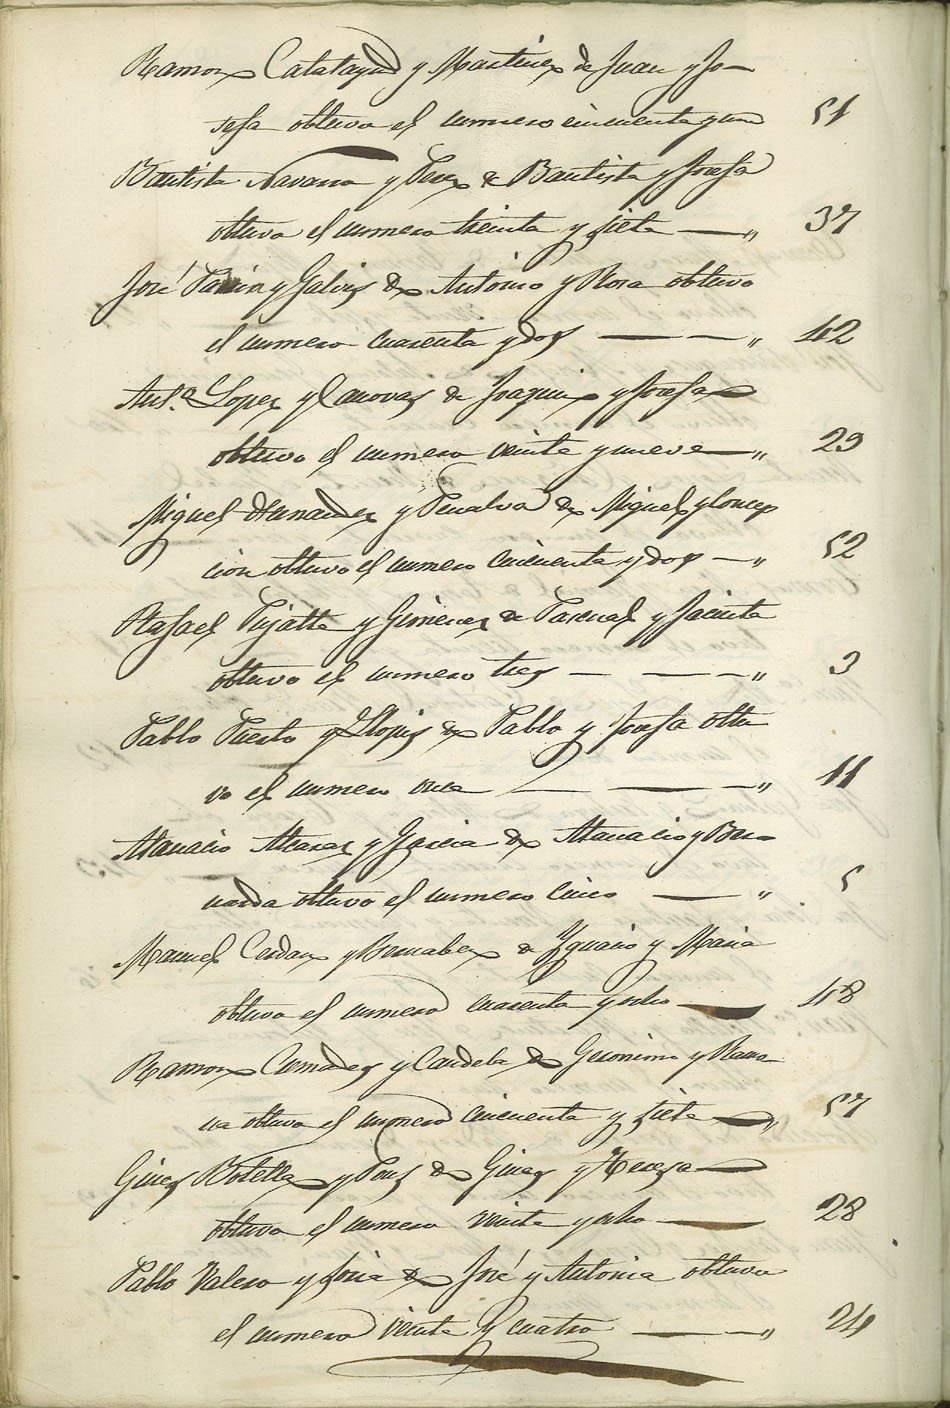 Ramon Calatayud y Martinez de Juan y Jo-
sefa obtuvo el numero cincuenta y un 51
Bautista Navarro y Perez de Bautista y Josefa
obtuvo el numero treinta y siete —„ 37
José Pavia y Galvis de Antonio y Rosa obtuvo
el numero cuarenta y dos — — —„ 42
Ant.º Lopez y Canovas de Joaquin y Josefa
obtuvo el numero veinte y nueve —„ 29
Miguel Hernandez y Penalva de Miguel y Concep
cion obtuvo el numero cincuenta y dos —„ 52
Rafael Pujalte y Gimenez de Pascual y Jacinta
obtuvo el numero tres — — —„ 3
Pablo Puerto y Llopis de Pablo y Josefa obtu
vo el numero once — — —„ 11
Atanacio Alvarez y Garcia de Atanacio y Ber-
narda obtuvo el numero cinco —„ 5
Manuel Cerdan y Bernabe de Ygnacio y Maria
obtuvo el numero cuarenta y ocho — 48
Ramon y Candela de Geronimo y Ramo
na obtuvo el numero cincuenta y siete —„ 57
Gines Botella y Pons de Gines y Teresa —
obtuvo el numero veinte y ocho — 28
Pablo Valero y Soria de José y Antonia obtuvo
el numero veinte y cuatro — —„ 24